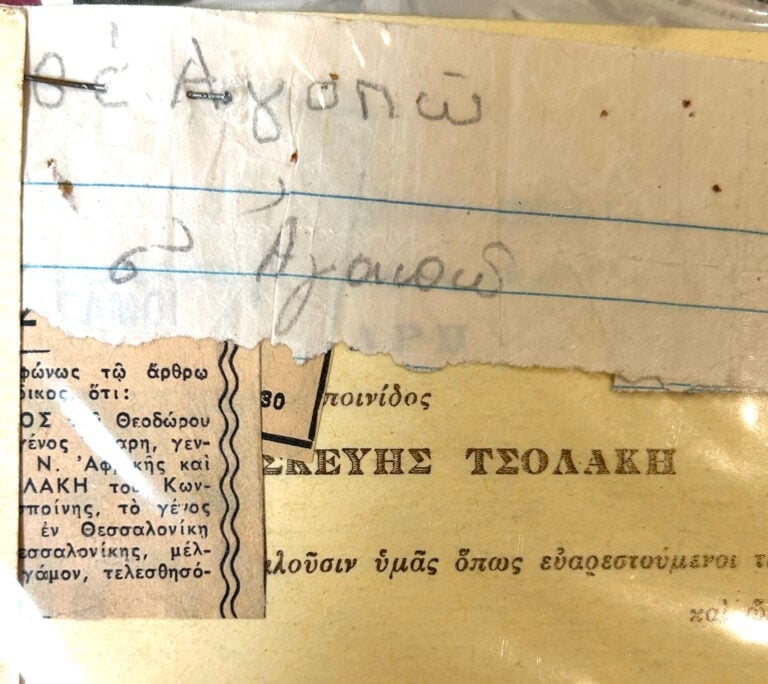 θέ Ἀγαπῶ
σ' Ἀγαπῶ
φώνως τῷ ἄρθρω
δικος ὅτι:
ΟΣ Θεοδώρου
γένος αρη, γεν-
Ν. Ἀφ κῆς καὶ
ΛΑΚΗ του Κων-
ποίνης, τὸ γένος
ἐν Θεσσαλονίκη
εσσαλονίκης, μέλ-
γάμον, τελεσθησό-
30
ποινίδος
ΣΚΕΥΗΣ ΤΣΟΛΑΚΗ
λοῦσιν ὑμᾶς ὅπως εὐαρεστούμενοι
καὶ